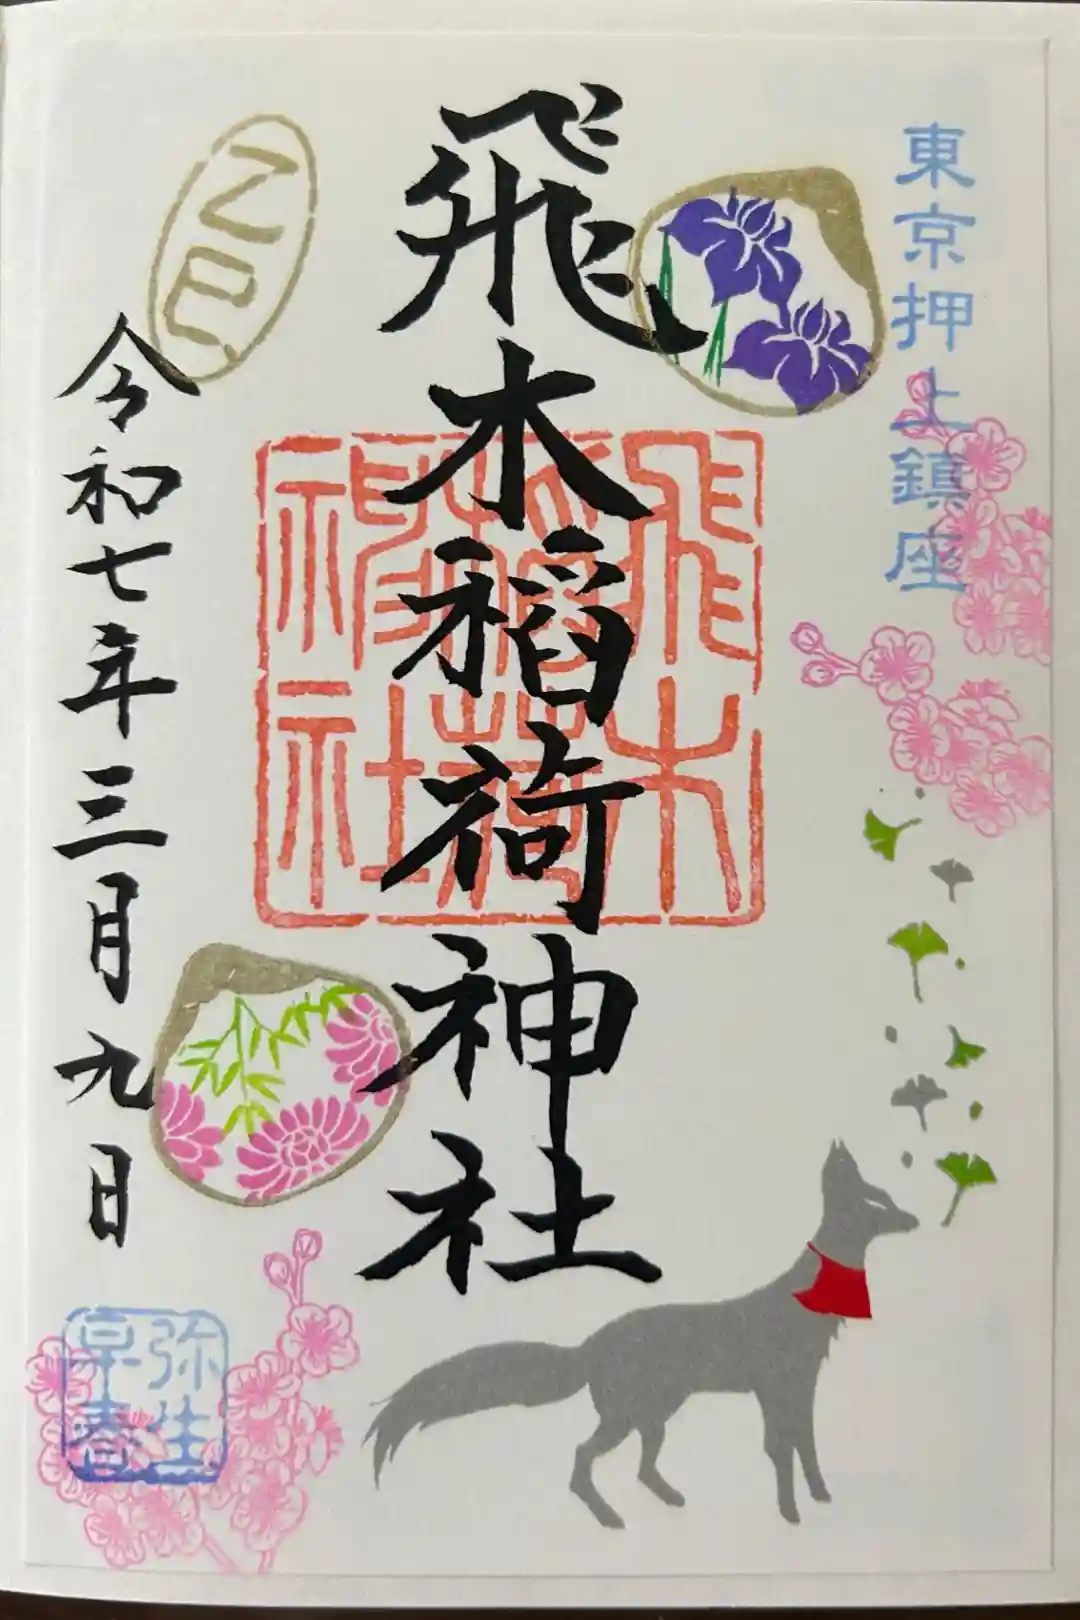 東京押上鎮座
飛木稲荷神社
飛木
稲荷
神社
乙巳
令和七年三月九日
弥生
早春